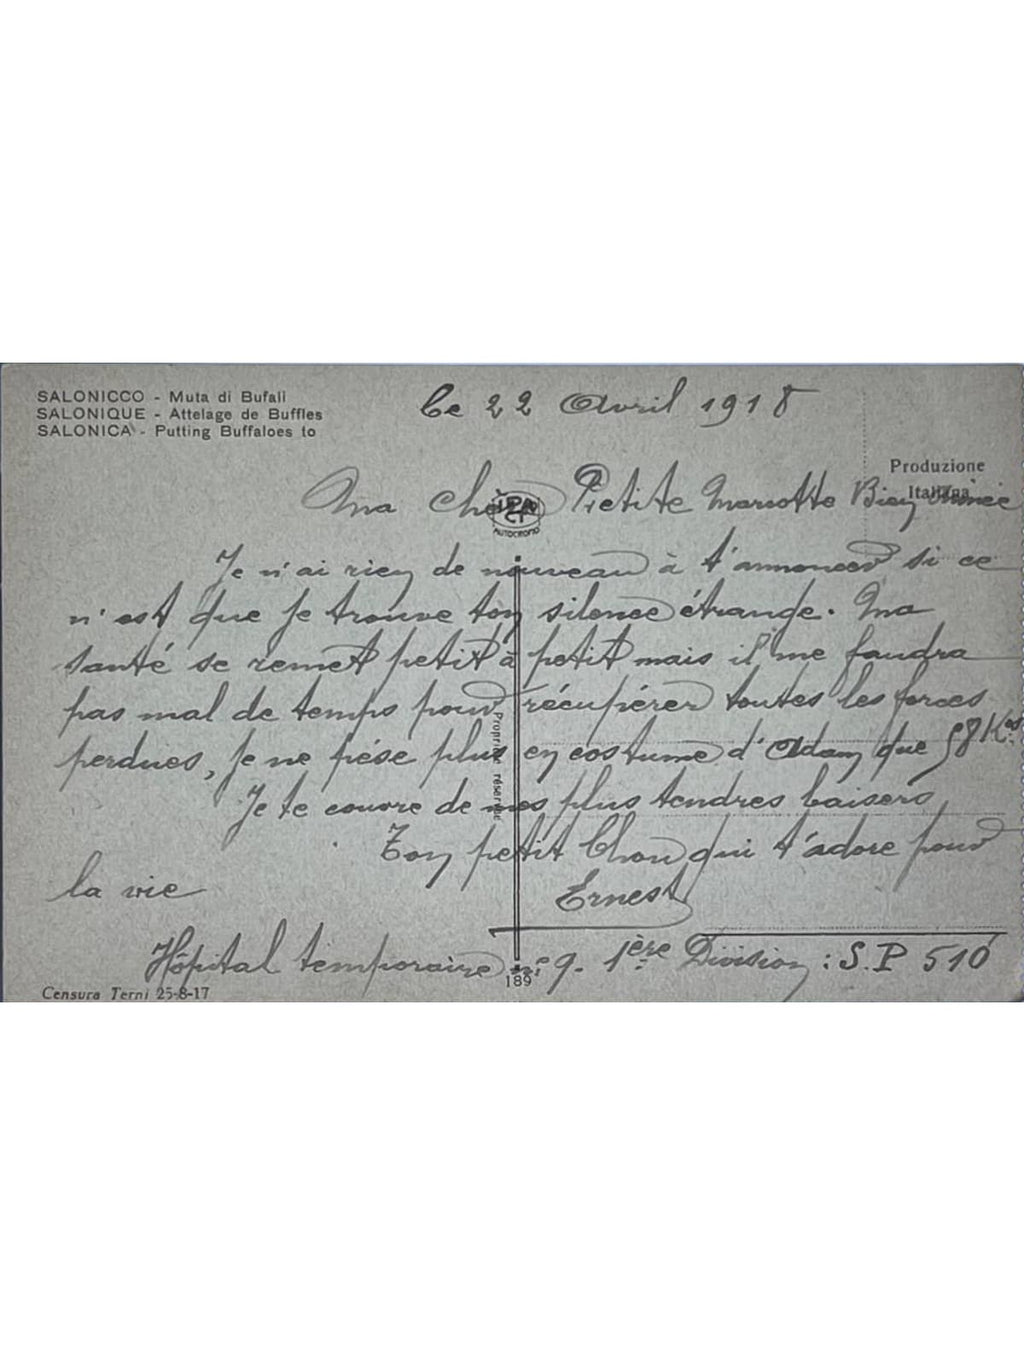 SALONICCO - Muta di Bufali
SALONIQUE - Attelage de Buffles
SALONICA - Putting Buffaloes to
Le 22 Avril 1918
Produzione
Italiana
Ma chère Petite Marcotte Bien Aimée
AUTOCROMO
Je n'ai rien de nouveau à t'annoncer si ce
n'est que je trouve ton silence étrange. Ma
santé se remet petit à petit mais il me faudra
pas mal de temps pour récupérer toutes les forces
perdues, je ne pèse plus en costume d'Adam que 58 Kos.
Je te couvre de mes plus tendres baisers
Ton petit Chou qui t'adore pour
la vie
Ernest
Hôpital temporaire no 9. 1ère Division : S.P 510
Censura Terni 25-8-17
189